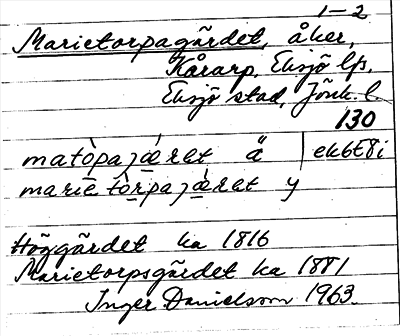 1-2
Marietorpagärdet, åker,
Kårarp, Eksjö lfs,
Eksjö stad, Jönk. l.
130
matòpajǽret ä | ek6E8i
marietòrpajǽret y
Höggärdet ka 1816
Marietorpsgärdet ka 1881
Inger Danielsson 1963.